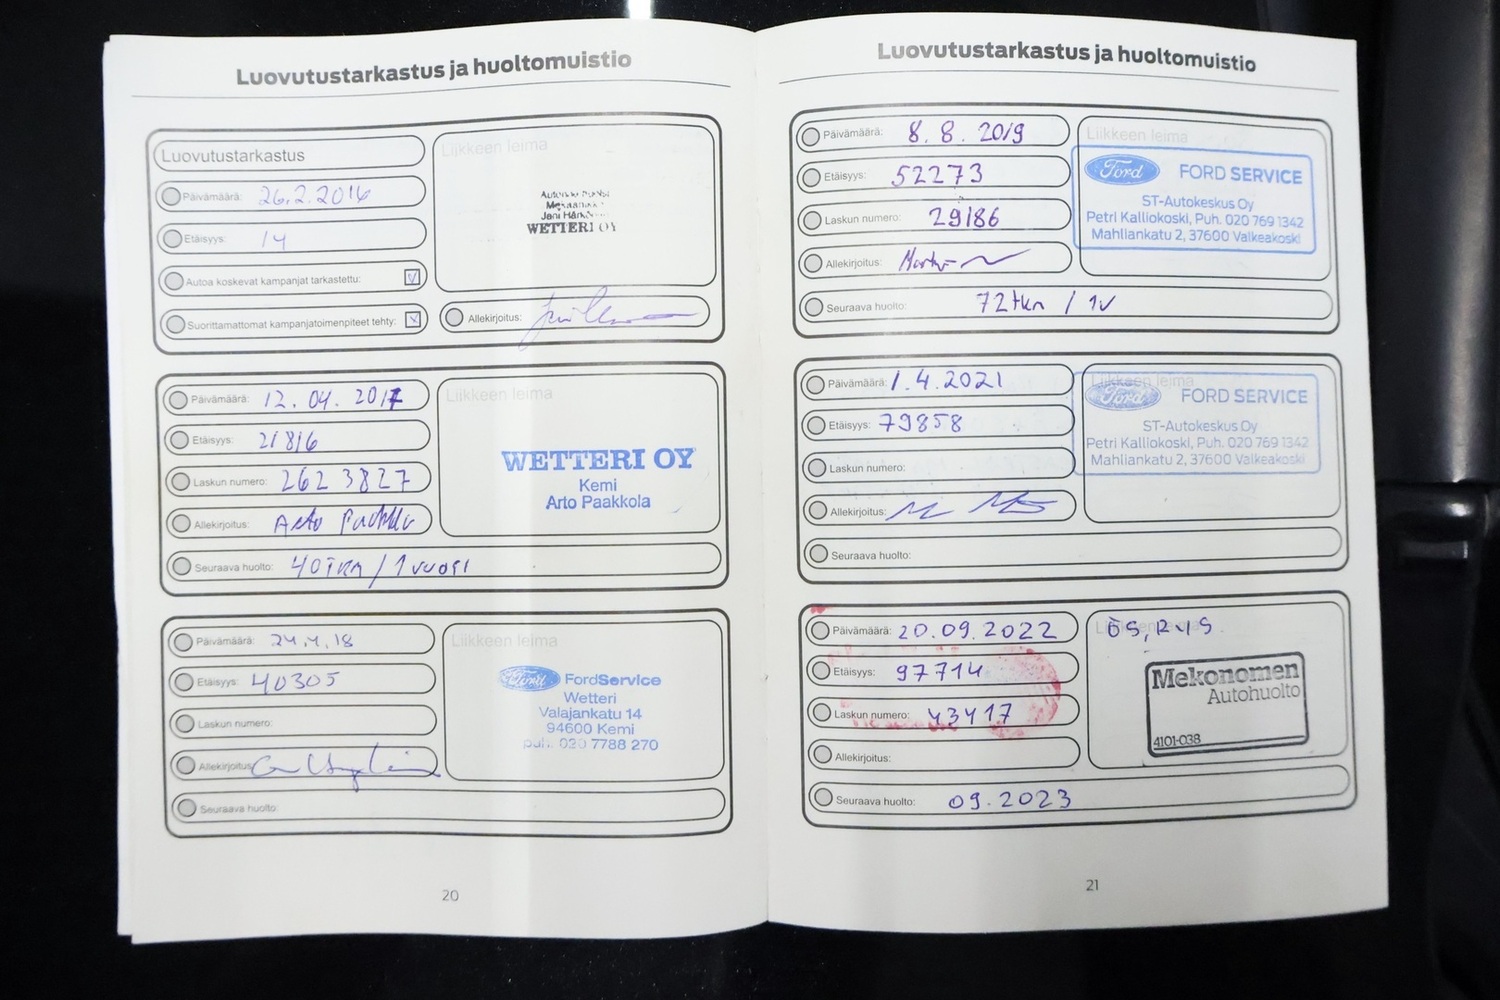 Luovutustarkastus ja huoltomuistio
Luovutustarkastus
Päivämäärä: 26.2.2016
Etäisyys: 14
Autoa koskevat kampanjat tarkastettu:
Suorittamattomat kampanjatoimenpiteet tehty:
Liikkeen leima
WETTERI OY
Allekirjoitus:
Päivämäärä: 12.04.2017
Etäisyys: 21816
Laskun numero: 2623827
Allekirjoitus: Arto Paakkola
Seuraava huolto: 40 Tkm / 1 vuosi
Liikkeen leima
WETTERI OY
Kemi
Arto Paakkola
Päivämäärä: 24.4.18
Etäisyys: 40305
Laskun numero:
Allekirjoitus:
Seuraava huolto:
Liikkeen leima
Ford FordService
Wetteri
Valajankatu 14
94600 Kemi
puh. 020 7788 270
20
Luovutustarkastus ja huoltomuistio
Päivämäärä: 8.8.2019
Etäisyys: 52273
Laskun numero: 29186
Allekirjoitus:
Seuraava huolto: 72 tkm / 1v
Liikkeen leima
Ford FORD SERVICE
ST-Autokeskus Oy
Petri Kalliokoski, Puh. 020 769 1342
Mahliankatu 2, 37600 Valkeakoski
Päivämäärä: 1.4.2021
Etäisyys: 79858
Laskun numero:
Allekirjoitus:
Seuraava huolto:
Liikkeen leima
Ford FORD SERVICE
ST-Autokeskus Oy
Petri Kalliokoski, Puh. 020 769 1342
Mahliankatu 2, 37600 Valkeakoski
Päivämäärä: 20.09.2022
Etäisyys: 97714
Laskun numero: 43417
Allekirjoitus:
Seuraava huolto: 09.2023
Mekonomen
Autohuolto
4101-038
21